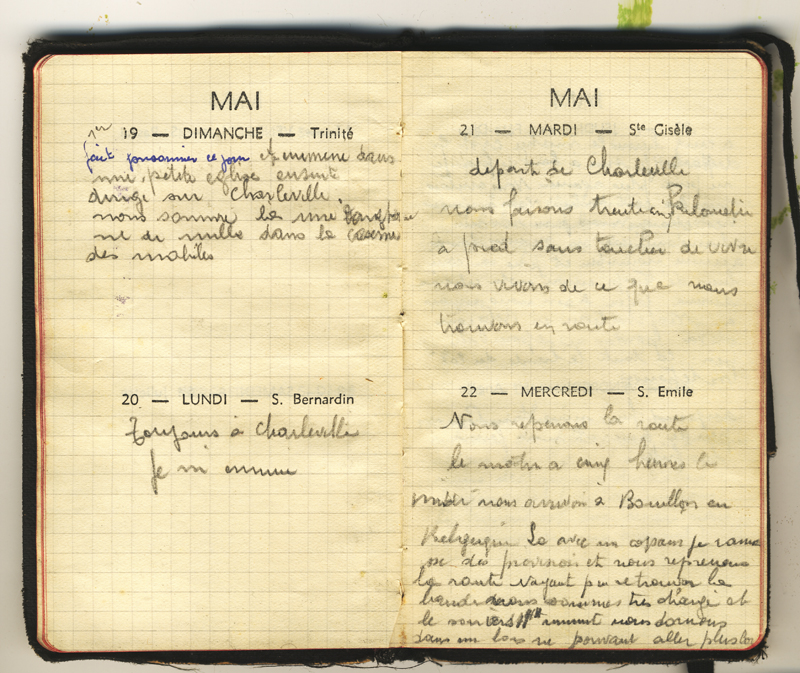 MAI
19 — DIMANCHE — Trinité
fait prisonnier ce jour et emmene dans
une petite eglise ensuite
dirigé sur Charleville.
nous somme la une
de mille dans la caserne
des mobiles
20 — LUNDI — S. Bernardin
Toujours a Charleville
Je m ennuie
MAI
21 — MARDI — Ste Gisèle
depart de Charleville
nous faisons trente cinq kilometre
a pied sans toucher de vivre
nous vivons de ce que nous
trouvons en route
22 — MERCREDI — S. Emile
Nous reprenons la route
le matin a cinq heures le
nous arrivon a Bouillon en
Belgique La avec un copain je ramas
se des provisoins et nous reprenons
la route n'ayant pu retrouver la
bande nous sommes tres chargé et
le soir vers nous dormons
dans un bois ne pouvant aller plus loin